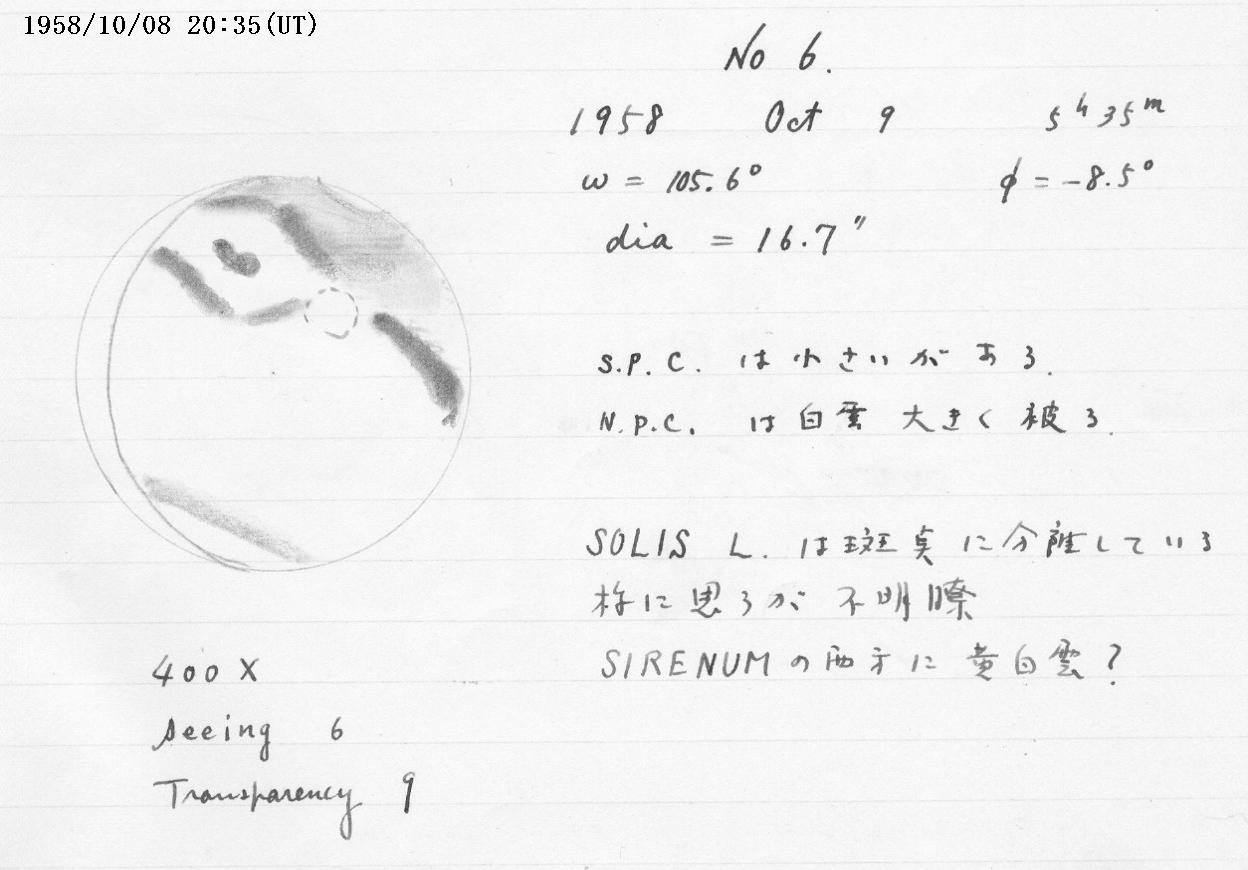 1958/10/08 20:35(UT)
No 6.
1958 Oct 9 5h 35m
ω = 105.6° φ = -8.5°
dia = 16.7"
S.P.C. は小さいがある.
N.P.C. は白雲大きく被る.
SOLIS L. は斑点に分離している
様に思るが 不明瞭
SIRENUM の西方に 黄白雲?
400 X
Seeing 6
Transparency 9